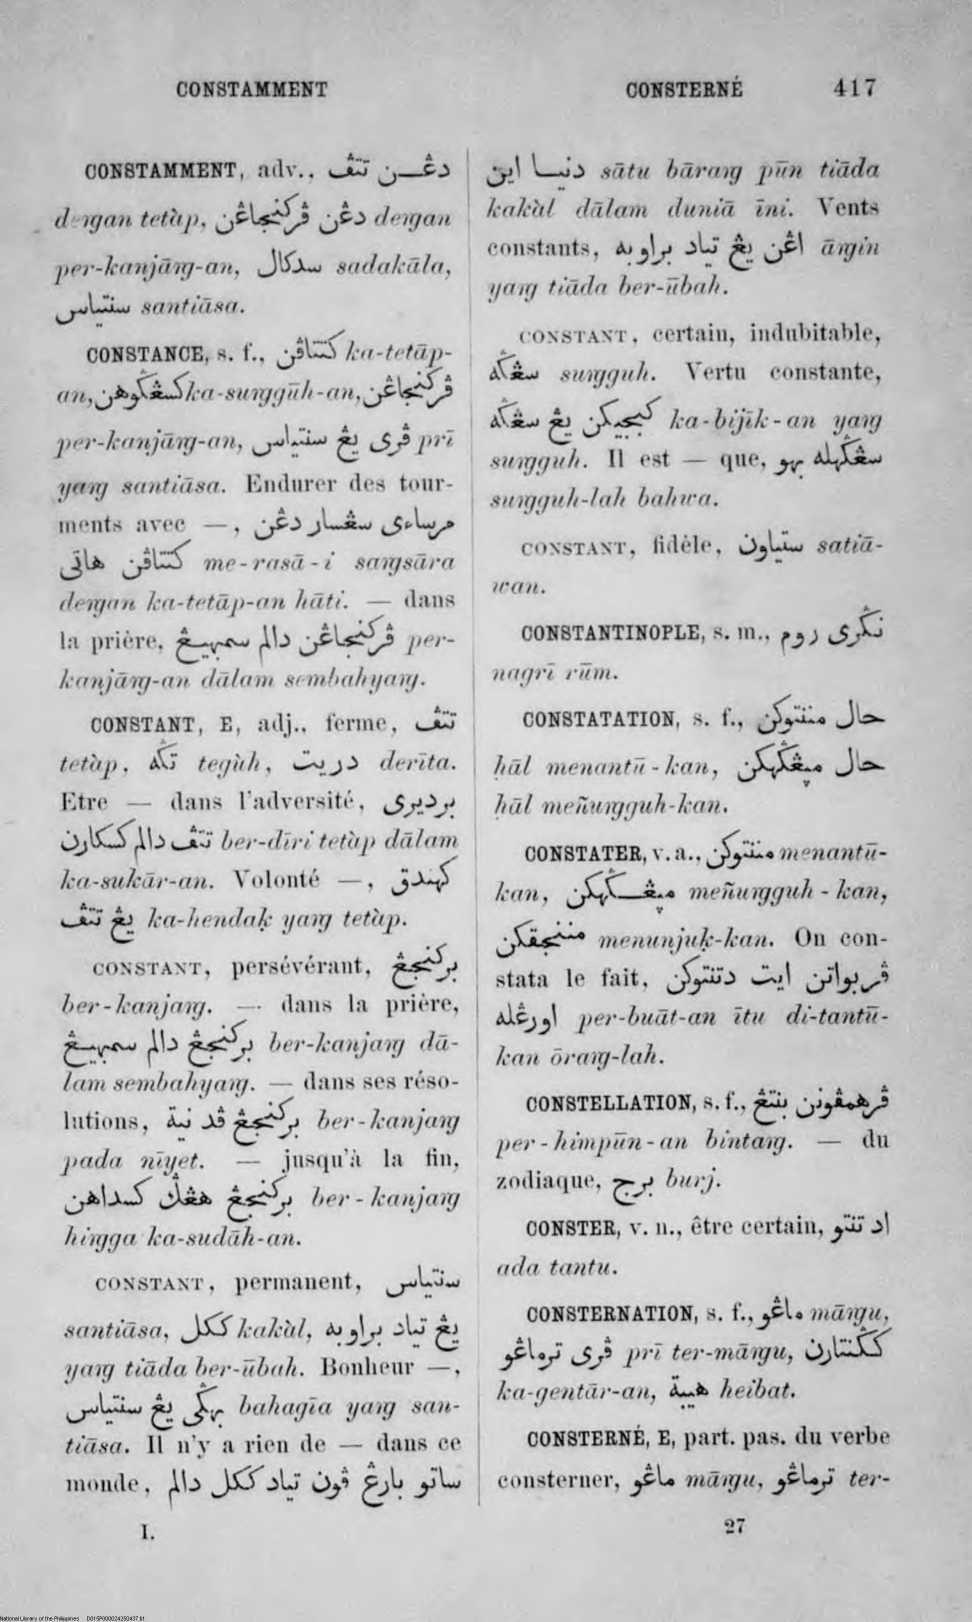 CONSTAMMENT
CONSTERNÉ 417
CONSTAMMENT, adv., دڠــن تتڤ
deṅgan tetàp, دڠن ڤركنجاڠن deṅgan
per-kanjāṅg-an, سدكال sadakāla,
سنتياس santiāsa.
CONSTANCE, s. f., كتتاڤن ka-tetāp-
an, كسڠݢوهن ka-suṅggūh-an, ڤركنجاڠن
per-kanjāṅg-an, ڤري يڠ سنتياس prī
yaṅg santiāsa. Endurer des tour-
ments avec —, مرساءي سڠسار دڠن
كتتاڤن هاتي me-rasā-i saṅgsāra
deṅgan ka-tetāp-an hāti. — dans
la prière, ڤركنجاڠن دالم سمبهيڠ per-
kanjāṅg-an dālam sembahyaṅg.
CONSTANT, E, adj., ferme, تتڤ
tetàp, تݢه tegùh, دريت derīta.
Etre — dans l'adversité, برديري
تتڤ دالم كسكارن ber-dīri tetàp dālam
ka-sukār-an. Volonté —, كهندق
يڠ تتڤ ka-hendaḳ yaṅg tetàp.
CONSTANT, persévérant, بركنجڠ
ber-kanjaṅg. — dans la prière,
بركنجڠ دالم سمبهيڠ ber-kanjaṅg dā-
lam sembahyaṅg. — dans ses réso-
lutions, بركنجڠ ڤد نية ber-kanjaṅg
pada nīyet. — jusqu'à la fin,
بركنجڠ هڠݢ كسداهن ber-kanjaṅg
hiṅgga ka-sudāh-an.
CONSTANT, permanent, سنتياس
santiāsa, ككل kakàl, يڠ تياد براوبه
yaṅg tiāda ber-ūbah. Bonheur —,
بهݢي يڠ سنتياس bahagīa yaṅg san-
tiāsa. Il n'y a rien de — dans ce
monde, ساتو بارڠ ڤون تياد ككل دالم
دنيــا اين sātu bāraṅg pūn tiāda
kakàl dālam duniā īni. Vents
constants, اڠن يڠ تياد براوبه āṅgin
yaṅg tiāda ber-ūbah.
CONSTANT, certain, indubitable,
سڠݢه suṅgguh. Vertu constante,
كبجيكن يڠ سڠݢه ka-bijīk-an yaṅg
suṅgguh. Il est — que, سڠݢهله بهو
suṅgguh-lah bahwa.
CONSTANT, fidèle, ستياون satiā-
wan.
CONSTANTINOPLE, s. m., نݢري روم
nagrī rūm.
CONSTATATION, s. f., حال مننتوكن
ḥāl menantū-kan, حال مڽڠݢهكن
ḥāl meñuṅgguh-kan.
CONSTATER, v. a., مننتوكن menantū-
kan, مڽڠݢهكن meñuṅgguh-kan,
مننجقكن menunjuḳ-kan. On con-
stata le fait, ڤربواتن ايت دتنتوكن
اورڠله per-buāt-an ītu di-tantū-
kan ōraṅg-lah.
CONSTELLATION, s. f., ڤرهمڤونن بنتڠ
per-himpūn-an bintaṅg. — du
zodiaque, برج burj.
CONSTER, v. n., être certain, اد تنتو
ada tantu.
CONSTERNATION, s. f., ماڠو māṅgu,
ڤري ترماڠو prī ter-māṅgu, كݢنتارن
ka-gentār-an, هيبة heibat.
CONSTERNÉ, E, part. pas. du verbe
consterner, ماڠو māṅgu, ترماڠو ter-
I.
27
National Library of the Philippines